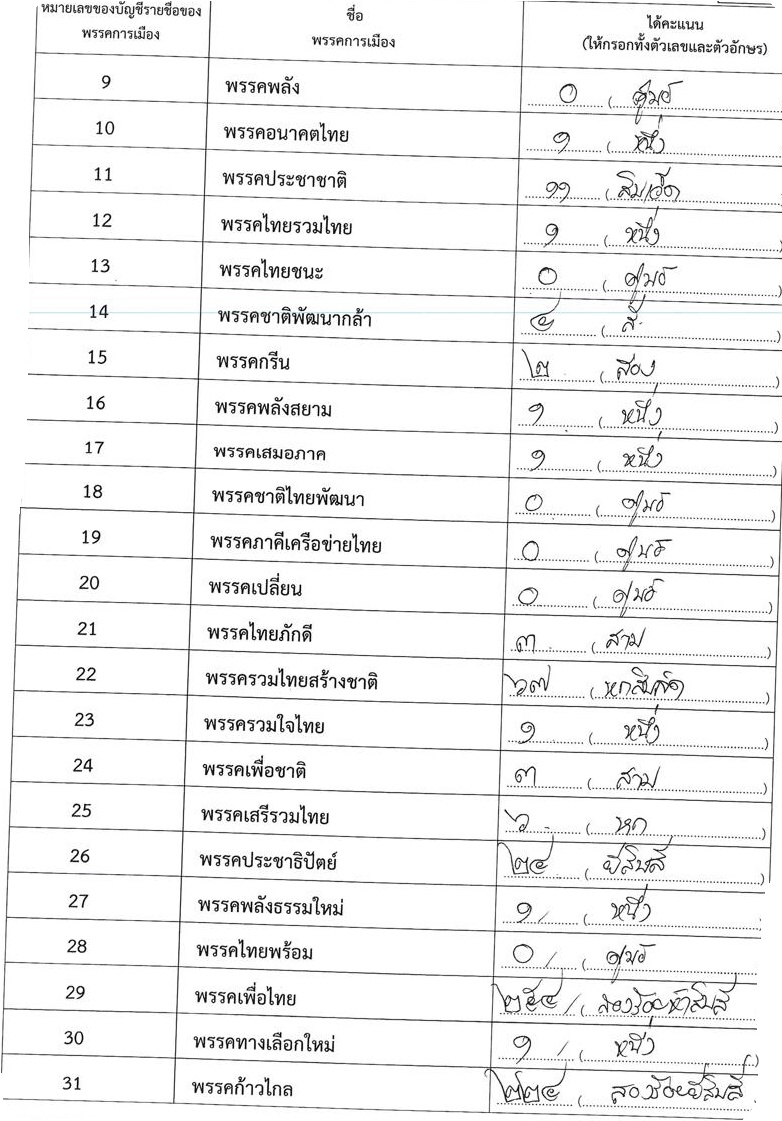 หมายเลขของบัญชีรายชื่อของ
พรรคการเมือง
ชื่อ
พรรคการเมือง
ได้คะแนน
(ให้กรอกทั้งตัวเลขและตัวอักษร)
9 พรรคพลัง ๐ ( ศูนย์
10 พรรคอนาคตไทย ๑ ( หนึ่ง )
11 พรรคประชาชาติ ๑๑ ( สิบเอ็ด )
12 พรรคไทยรวมไทย ๑ ( หนึ่ง )
13 พรรคไทยชนะ ๐ ( ศูนย์ )
14 พรรคชาติพัฒนากล้า ๔ ( สี่ )
15 พรรคกรีน ๒ ( สอง )
16 พรรคพลังสยาม ๑ ( หนึ่ง )
17 พรรคเสมอภาค ๑ ( หนึ่ง )
18 พรรคชาติไทยพัฒนา ๐ ( ศูนย์ )
19 พรรคภาคีเครือข่ายไทย ๐ ( ศูนย์ )
20 พรรคเปลี่ยน ๐ ( ศูนย์ )
21 พรรคไทยภักดี ๓ ( สาม )
22 พรรครวมไทยสร้างชาติ ๖๗ ( หกสิบเจ็ด )
23 พรรครวมใจไทย ๑ ( หนึ่ง )
24 พรรคเพื่อชาติ ๓ ( สาม )
25 พรรคเสรีรวมไทย ๖ ( หก )
26 พรรคประชาธิปัตย์ ๒๔ ( ยี่สิบสี่ )
27 พรรคพลังธรรมใหม่ ๑ ( หนึ่ง
28 พรรคไทยพร้อม ๐ ( ศูนย์
29 พรรคเพื่อไทย ๒๕๔ ( สองร้อยห้าสิบสี่
30 พรรคทางเลือกใหม่ ๑ ( หนึ่ง )
31 พรรคก้าวไกล ๒๒๔ ( สองร้อยยี่สิบสี่